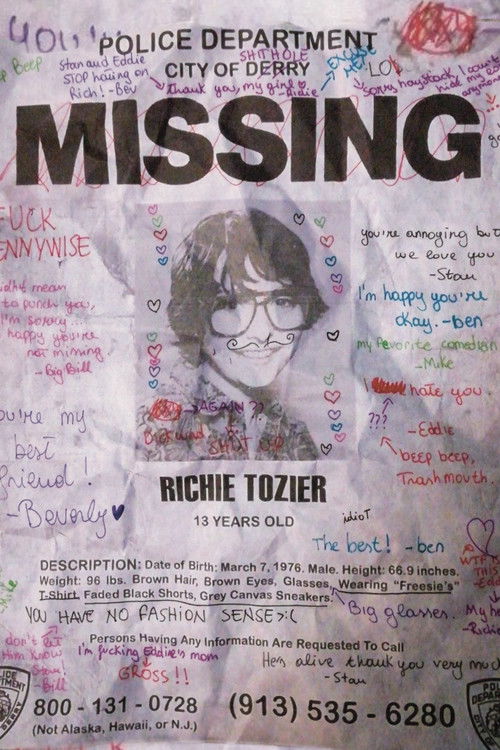 YOU!!
POLICE DEPARTMENT
SHITHOLE
CITY OF DERRY
Beep
Stan and Eddie
STOP hating on
Rich! - Bev
thank you, my girl
- Richie
LOL
Sorry, haystack, I can't
MISSING
FUCK
PENNYWISE
to punch you,
I'm sorry...
happy you're
not missing.
- Big Bill
you're annoying but
we love you
- Stan
I'm happy you're
okay. - ben
my favorite comedian
- Mike
I hate you.
- Eddie
???
beep beep,
Trashmouth.
AGAIN??
SHUT UP
You're my
best
friend!
- Beverly
RICHIE TOZIER
13 YEARS OLD
idioT
The best! - ben
DESCRIPTION: Date of Birth: March 7, 1976. Male. Height: 66.9 inches.
Weight: 96 lbs. Brown Hair, Brown Eyes, Glasses, Wearing "Freesie's"
T-Shirt, Faded Black Shorts, Grey Canvas Sneakers.
Big glasses.
YOU HAVE NO FASHION SENSE >:(
WTF
THIS
Eddie
My
- Richie
Persons Having Any Information Are Requested To Call
don't let
Him Know
Stan!
- Bill
I'm fucking Eddie's mom
GROSS!!
He's alive thank you very much
- Stan
800 - 131 - 0728
(Not Alaska, Hawaii, or N.J.)
(913) 535 - 6280